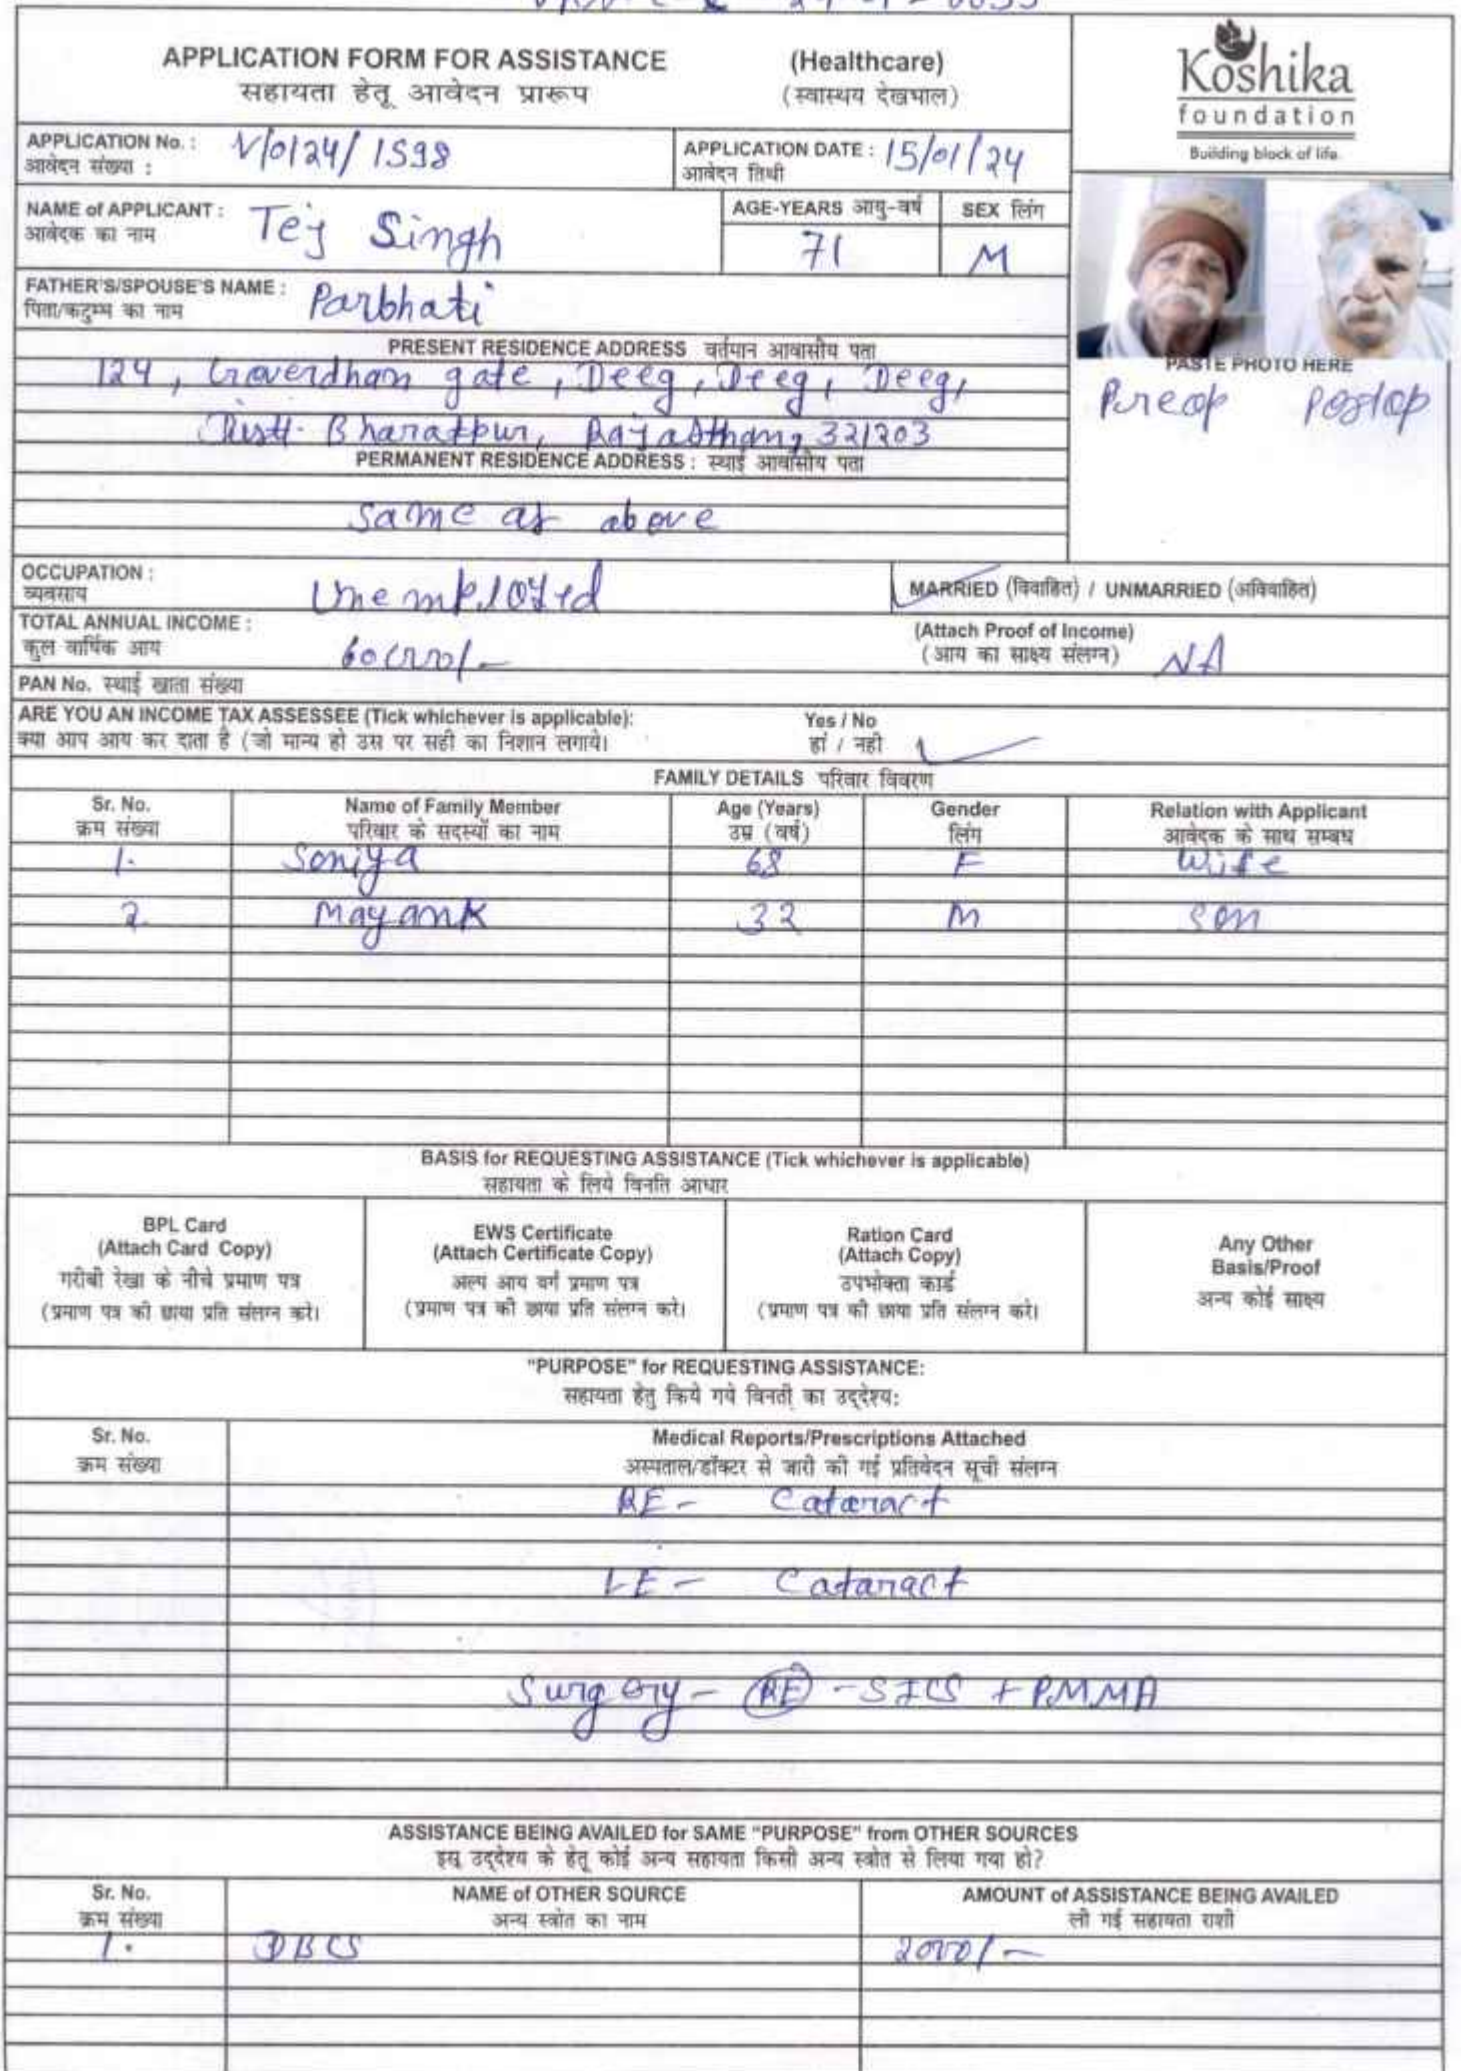 APPLICATION FORM FOR ASSISTANCE (Healthcare)
सहायता हेतू आवेदन प्रारूप (स्वास्थय देखभाल)
Koshika
foundation
Building block of life.
APPLICATION No. : V/0124/1598
आवेदन संख्या :
APPLICATION DATE : 15/01/24
आवेदन तिथी
NAME of APPLICANT : Tej Singh
आवेदक का नाम
AGE-YEARS आयु-वर्ष
71
SEX लिंग
M
FATHER'S/SPOUSE'S NAME : Parbhati
पिता/कटुम्ब का नाम
PRESENT RESIDENCE ADDRESS वर्तमान आवासीय पता
124, Goverdhan gate, Deeg, Deeg, Deeg,
Distt- Bharatpur, Rajasthan, 321203
PASTE PHOTO HERE
Preop Postop
PERMANENT RESIDENCE ADDRESS : स्थाई आवासीय पता
Same as above
OCCUPATION : Unemployed
व्यवसाय
MARRIED (विवाहित) / UNMARRIED (अविवाहित)
TOTAL ANNUAL INCOME :
कुल वार्षिक आय 60000/-
(Attach Proof of Income)
(आय का साक्ष्य संलग्न) NA
PAN No. स्थाई खाता संख्या
ARE YOU AN INCOME TAX ASSESSEE (Tick whichever is applicable): Yes / No
क्या आप आय कर दाता है (जो मान्य हो उस पर सही का निशान लगाये। हां / नही
FAMILY DETAILS परिवार विवरण
Sr. No. Name of Family Member Age (Years) Gender Relation with Applicant
क्रम संख्या परिवार के सदस्यों का नाम उम्र (वर्ष) लिंग आवेदक के साथ सम्बध
1. Soniya 68 F Wife
2. Mayank 32 M Son
BASIS for REQUESTING ASSISTANCE (Tick whichever is applicable)
सहायता के लिये विनति आधार
BPL Card
(Attach Card Copy)
गरीबी रेखा के नीचे प्रमाण पत्र
(प्रमाण पत्र की छाया प्रति संलग्न करे।
EWS Certificate
(Attach Certificate Copy)
अल्प आय वर्ग प्रमाण पत्र
(प्रमाण पत्र की छाया प्रति संलग्न करे।
Ration Card
(Attach Copy)
उपभोक्ता कार्ड
(प्रमाण पत्र की छाया प्रति संलग्न करे।
Any Other
Basis/Proof
अन्य कोई साक्ष्य
"PURPOSE" for REQUESTING ASSISTANCE:
सहायता हेतु किये गये विनती का उद्देश्य:
Sr. No. Medical Reports/Prescriptions Attached
क्रम संख्या अस्पताल/डॉक्टर से जारी की गई प्रतिवेदन सूची संलग्न
RE - Cataract
LE - Cataract
Surgery - RE - SICS + PMMA
ASSISTANCE BEING AVAILED for SAME "PURPOSE" from OTHER SOURCES
इस उद्देश्य के हेतू कोई अन्य सहायता किसी अन्य स्त्रोत से लिया गया हो?
Sr. No. NAME of OTHER SOURCE AMOUNT of ASSISTANCE BEING AVAILED
क्रम संख्या अन्य स्त्रोत का नाम ली गई सहायता राशी
1. DBCS 2000/-